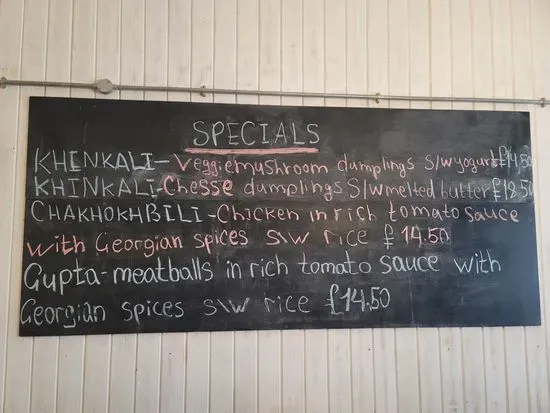 SPECIALS
KHINKALI-Veggiemushroom dumplings S/w yogurt £14,50
KHINKALI-Chesse dumplings S/w melted butter £18,50
CHAKHOKHBILI-Chicken in rich tomato sauce
with Georgian spices s\w rice £ 14.50
Gupta-meatballs in rich tomato sauce with
Georgian spices s\w rice £14.50